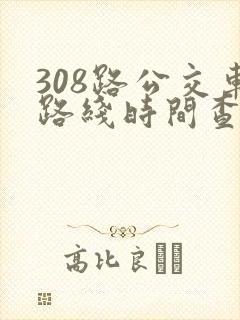 308路公交車
路綫時間查
高比良